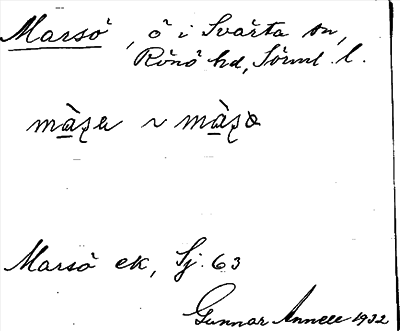 Marsö, ö i Svärta sn,
Rönö hd, Sörml. l.
màsa ~ màsə
Marsö ek, Sj. 63
Gunnar Annell 1932